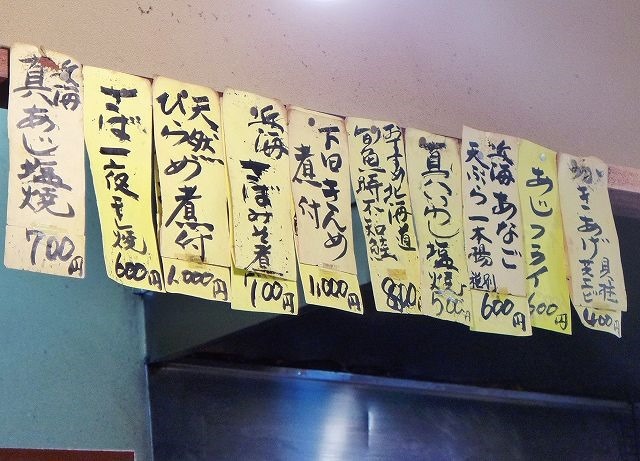 近海
真あじ塩焼
700円
さば一夜干焼
600円
天然
ひらめ煮付
1,000円
近海
さばみそ煮
700円
下田きんめ
煮付
1,000円
おすすめ北海道
旬魚時不知鮭
800円
真いわし塩焼
500円
近海あなご
天ぷら一本揚
600円
あじフライ
500円
かきあげ
貝柱
芝エビ
400円